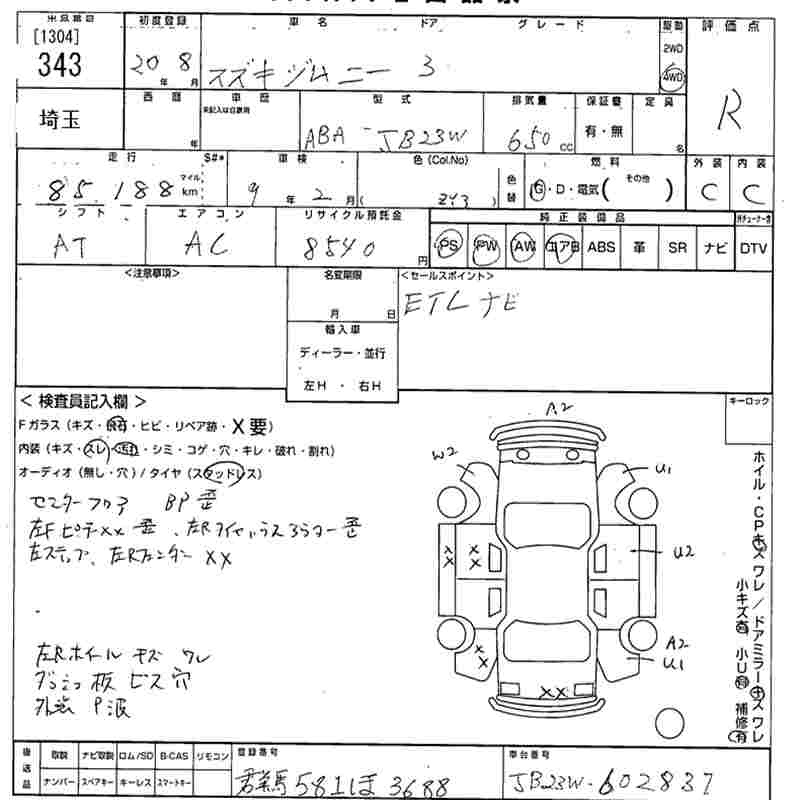 出品番号 初度登録 車名 ドア グレード 駆動 評価点
[1304]
343 20年 8月 スズキ ジムニー 3 2WD 4WD R
埼玉 西暦 年 車歴 未記入は自家用 型式 排気量 保証書 定員
ABA JB23W 650cc 有・無 名
走行 S#* 車検 色(Col.No) 燃料 外装 内装
85,188 マイル km 9年 2月 ( ZY3 ) 色替 G・D・電気( その他 ) C C
シフト エアコン リサイクル預託金 純正装備品
AT AC 8540円 PS PW AW エアB ABS 革 SR ナビ DTV
<注意事項> 名変期限 <セールスポイント>
月 日 ETC ナビ
輸入車
ディーラー・並行
左H ・ 右H
<検査員記入欄> キーロック
Fガラス(キズ・ ・ヒビ・リペア跡・X要)
内装(キズ・スレ・汚れ・シミ・コゲ・穴・キレ・破れ・割れ)
オーディオ(無し・穴)/タイヤ(スタッドレス)
センターフロア BP歪
左Fピラーxx 歪、左R 歪
左ステップ、左Rフェンダー xx
左Rホイール キズ ワレ
板 ビス穴
P波
A2
W2 U1
xx xx U2
A2
xx U1
xx
ホイル・CPキズワレ/ドアミラーキズワレ
小キズ有 小U有 補修有
後送品 取説 ナビ取説 ロム/SD B-CAS リモコン 登録番号 車台番号
ナンバー スペアキー キーレス スマートキー 群馬 581 ほ 3688 JB23W-602837